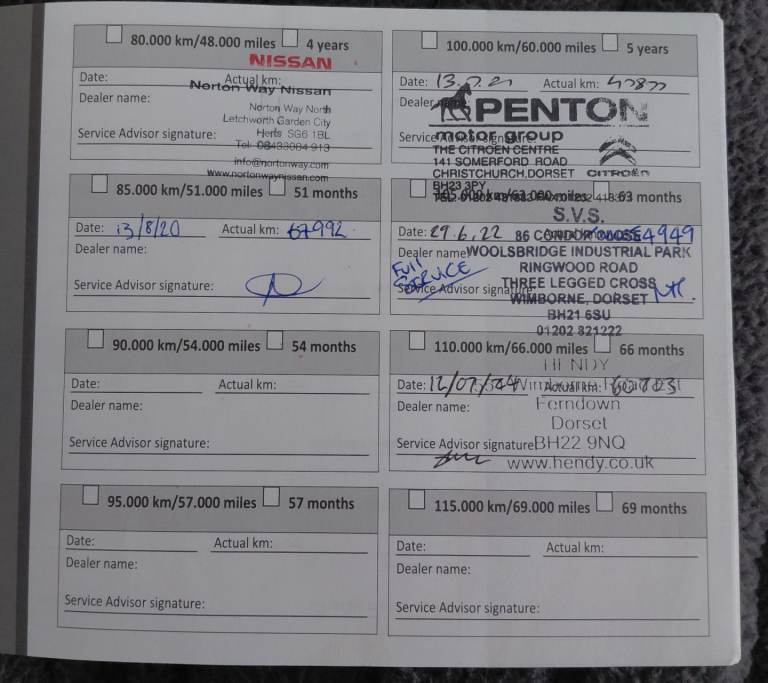 80.000 km/48.000 miles 4 years
NISSAN
Date: Actual km:
Norton Way Nissan
Dealer name:
Norton Way North
Letchworth Garden City
Service Advisor signature: Herts SG6 1BL
Tel: 08433084 913
info@nortonway.com
www.nortonwaynissan.com
85.000 km/51.000 miles 51 months
Date: 13/8/20 Actual km: 67992
Dealer name:
Service Advisor signature:
90.000 km/54.000 miles 54 months
Date: Actual km:
Dealer name:
Service Advisor signature:
95.000 km/57.000 miles 57 months
Date: Actual km:
Dealer name:
Service Advisor signature:
100.000 km/60.000 miles 5 years
Date: Actual km:
Dealer
PENTON
motor group
THE CITROEN CENTRE
141 SOMERFORD ROAD
CHRISTCHURCH, DORSET CITROËN
BH23 3PY
63 months
S.V.S.
Date: 29.6.22 86 CONDOR CLOSE
Dealer name WOOLSBRIDGE INDUSTRIAL PARK
RINGWOOD ROAD
Full SERVICE
Service Advisor signature THREE LEGGED CROSS
WIMBORNE, DORSET
BH21 6SU
01202 821222
110.000 km/66.000 miles 66 months
HENDY
Date: Actual km:
Dealer name: Ferndown
Dorset
Service Advisor signature BH22 9NQ
www.hendy.co.uk
115.000 km/69.000 miles 69 months
Date: Actual km:
Dealer name:
Service Advisor signature: